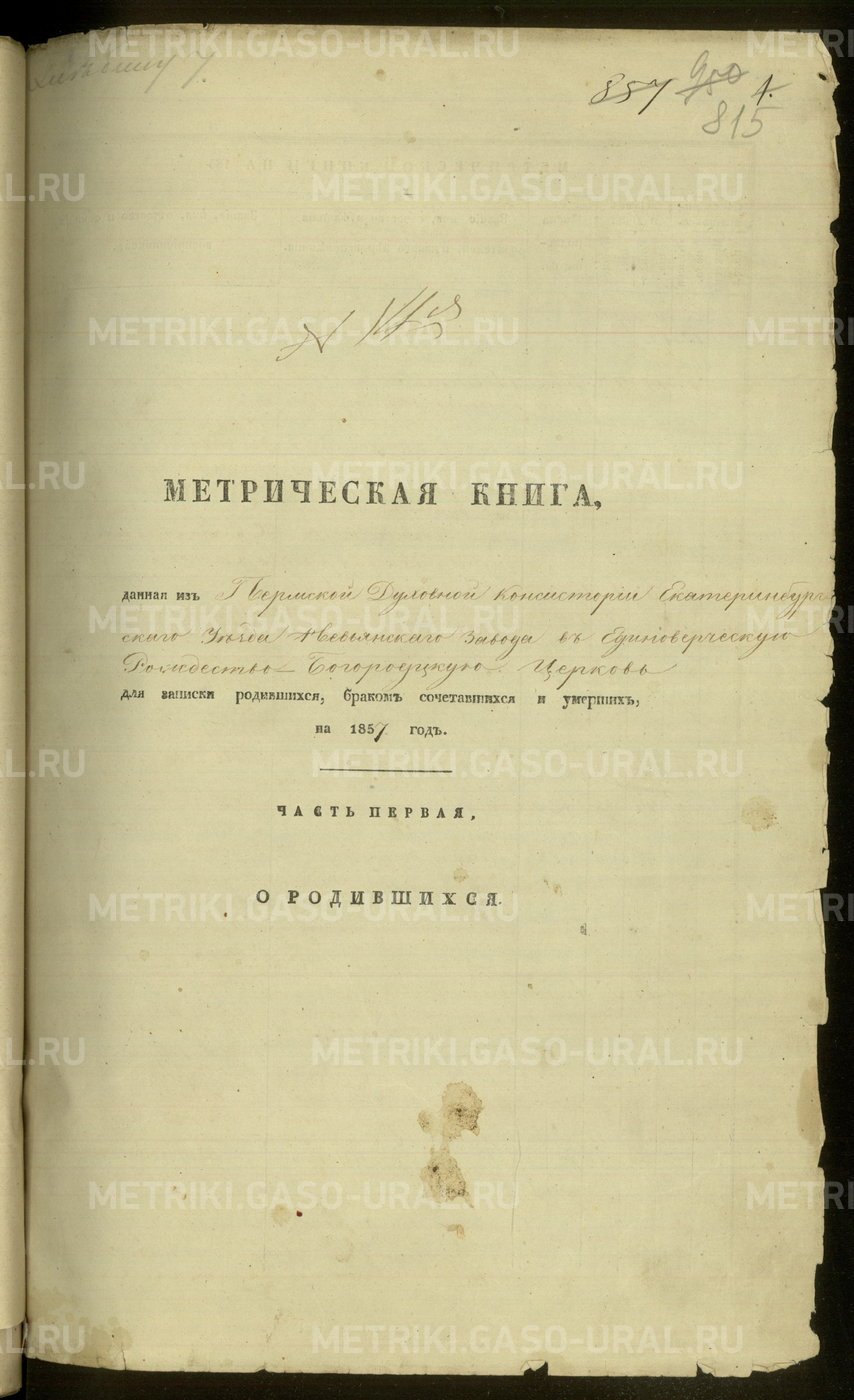 857 980 1.
815
МЕТРИЧЕСКАЯ КНИГА,
данная изъ Пермской Духовной Консисторіи Екатеринбург
скаго Уѣзда Невьянскаго Завода въ Единоверческую
Рождество-Богородицкую Церковь
для записки родившихся, бракомъ сочетавшихся и умершихъ,
на 1857 годъ.
ЧАСТЬ ПЕРВАЯ,
О РОДИВШИХСЯ.
METRIKI.GASO-URAL.RU